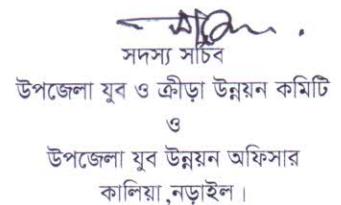 সদস্য সচিব
উপজেলা যুব ও ক্রীড়া উন্নয়ন কমিটি
ও
উপজেলা যুব উন্নয়ন অফিসার
কালিয়া,নড়াইল।